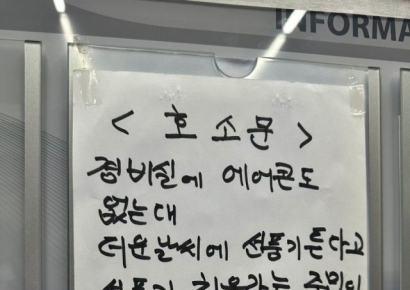 INFORMA
< 호 소 문 >
경비실에 에어콘도
없는대
더운날씨에 선풍기튼다고
선풍기